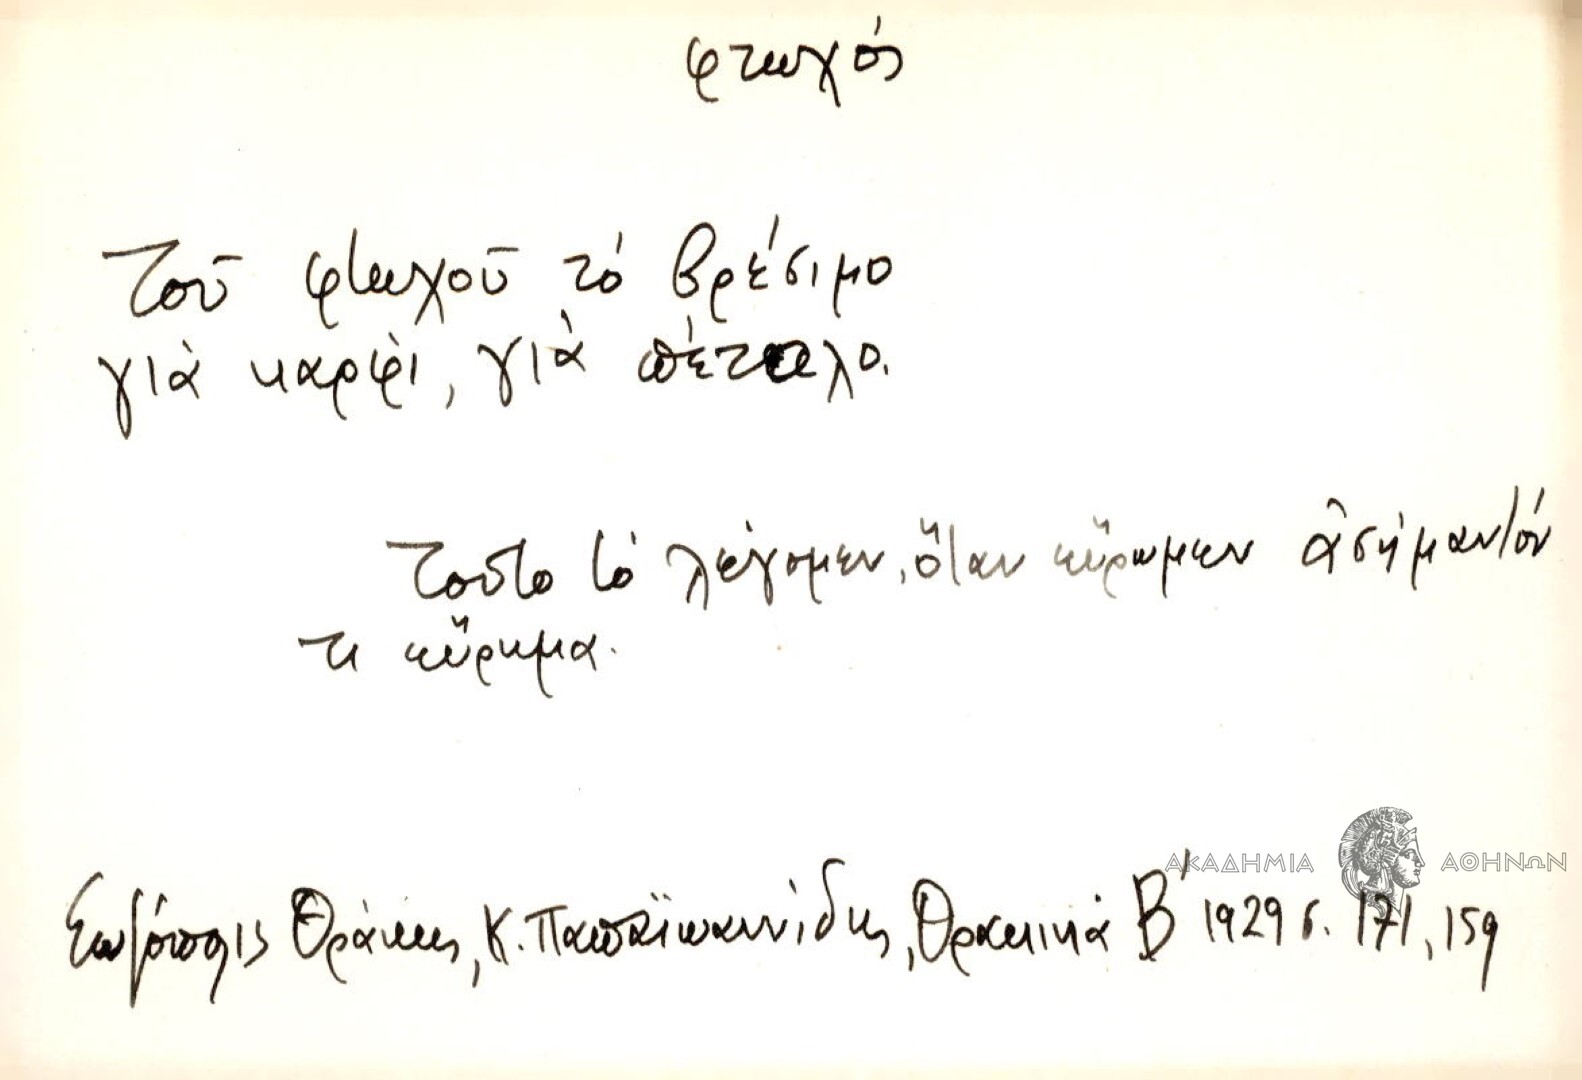 φτωχός
Τοῦ φτωχοῦ τό βρέσιμο
γιὰ καρφὶ, γιὰ πέταλο.
Τοῦτο τό λέγομεν, ὅταν εὕρωμεν ἀσήμαντόν
τι εὕρημα.
ΑΚΑΔΗΜΙΑ ΑΘΗΝΩΝ
Σωζόπολις Θράκης, Κ. Παπαϊωαννίδης, Θρακικά Β' 1929 σ. 171, 159